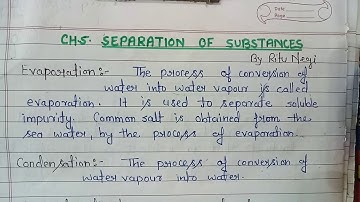 Date
Page
CH-5. SEPARATION OF SUBSTANCES
By Ritu Negi
Evaporation:- The process of conversion of
water into water vapour is called
evaporation. It is used to separate soluble
impurity. Common salt is obtained from the
sea water, by the process of evaporation.
Condensation:- The process of conversion of
water vapour into water.